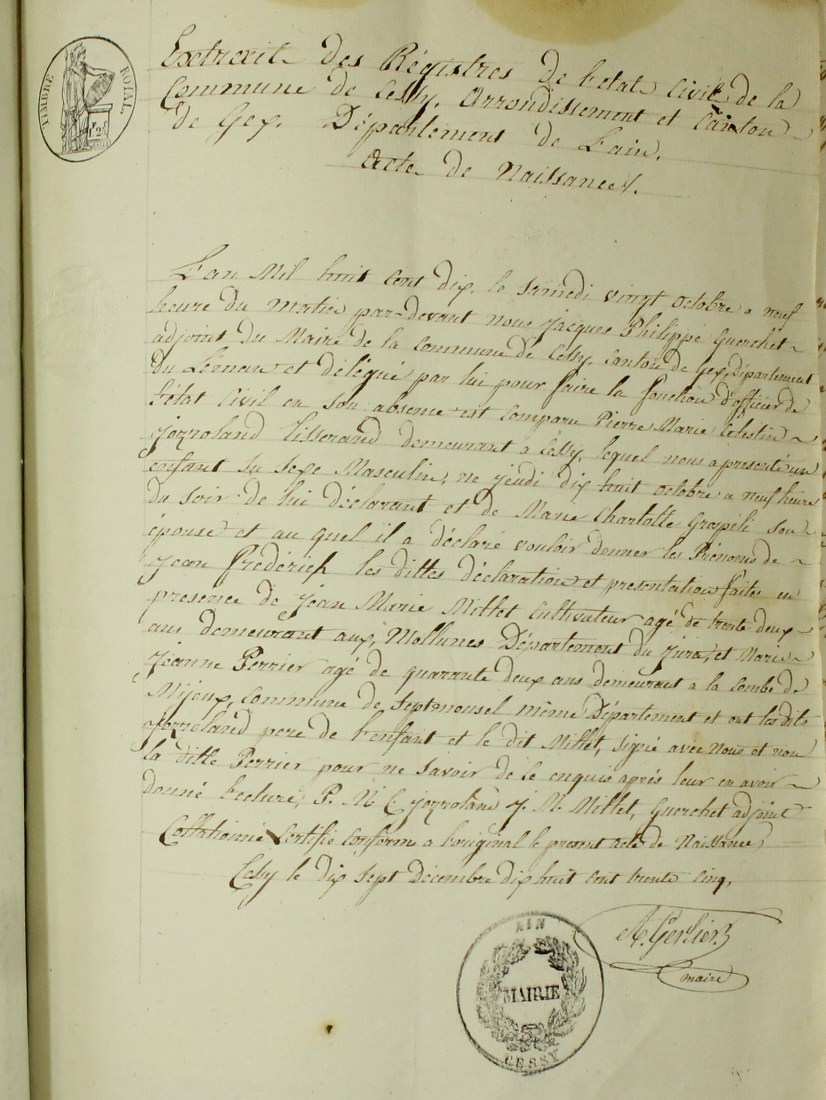 TIMBRE ROYAL
Extrait des Régistres de l'état Civil de la
Commune de Cessy, Arrondissement et Canton
de Gex. Département de L'ain.
Acte de Naissance.
L'an Mil huit Cent dix. le Samedi vingt octobre a neuf
heure du matin par-devant nous Jacques Philippe Guerchet
adjoint du Maire de la Commune de Cessy, Canton de Gex, Département
du Léman et délégué par lui pour faire la fonction d'officier de
l'état Civil en son absence est Comparu Pierre Marie Célestin
Jozroland tisserand demeurant a Cessy, lequel nous a presenté un
enfant du sexe Masculin, ne jeudi dix huit octobre a neuf heures
du soir de lui déclarant et de Marie Charlotte Grospéli son
épouse et au quel il a déclaré vouloir donner les Prénoms de
Jean Fréderich les dittes déclaration et presentation faites en
presence de Jean Marie Millet Cultivateur agé de trente deux
ans demeurant aux, Mollunes Département du Jura, et Marie
Jeanne Perrier agé de quarante deux ans demeurant a la Combe de
Mijoux, Commune de Septmousel même Département et ont lesdits
Jozroland pere de l'enfant et le dit Millet, signé avec nous et non
la ditte Perrier pour ne Savoir de le enquis après leur en avoir
donné lecture, P. M. C. Jozroland J. M. Millet, Guerchet adjoint
Collationné & Certifié Conforme a l'original le present acte de Naissance,
Cessy le dix Sept Décembre dix huit cent trente Cinq,
A. Gerlier
maire
AIN
MAIRIE
CESSY